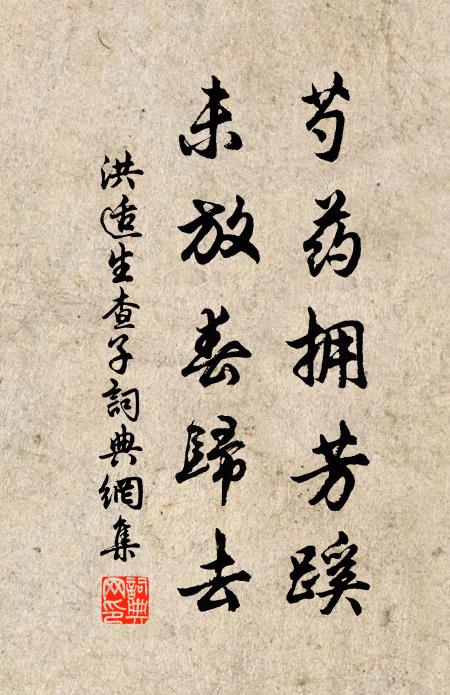 芍药拥芳蹊
未放春歸去
洪适生查子詞典網集
詞典
网印